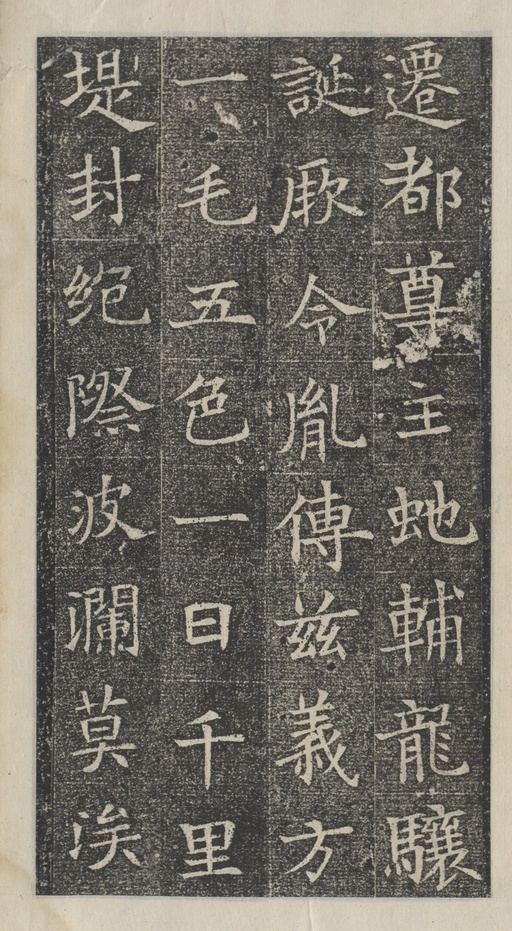 遷都尊主虵輔龍驤
誕厥令胤傳兹義方
一毛五色一日千里
堤封絶際波瀾莫涘